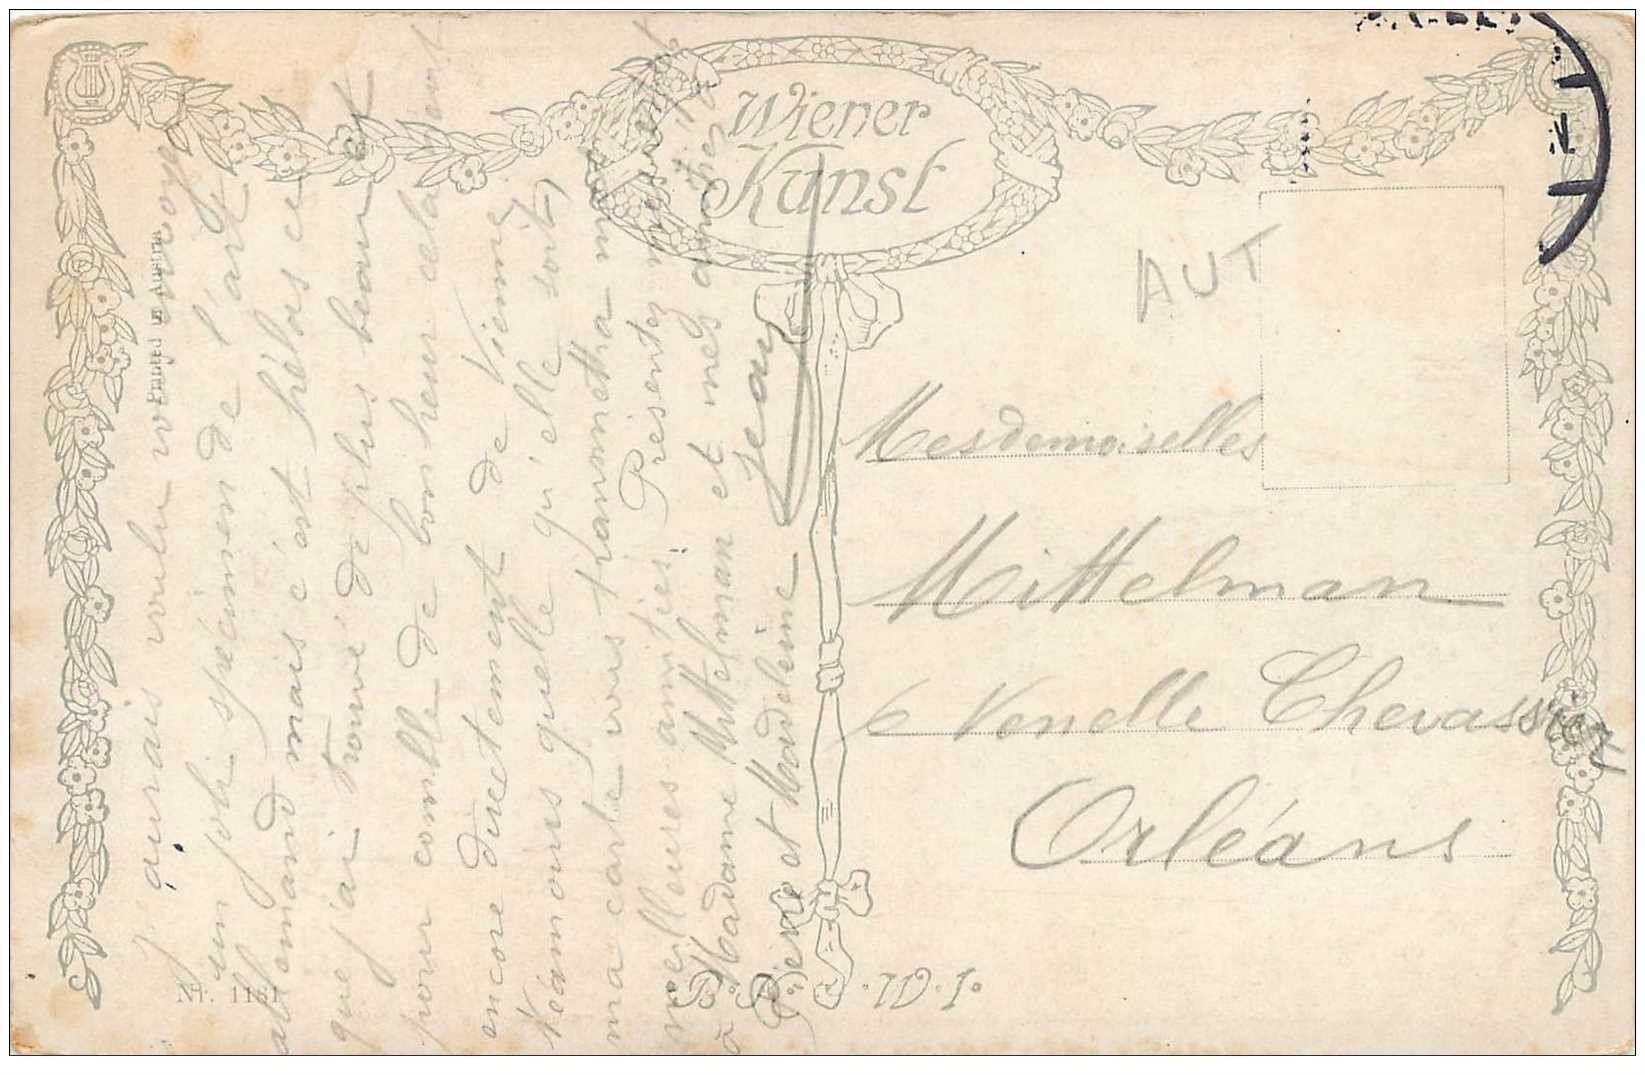 Wiener
Kunst
AUT
Mesdemoiselles
Mittelman
6 Venelle Chevassier
Orléans
J'aurais voulu vous envoyer
un joli spécimen de l'art
allemand mais c'est hélas ce
que j'ai trouvé de plus beau et
pour comble de bonheur cela vient
encore directement de Vienne
Néamoins quelle qu'elle soit
ma carte vous transmettra mes
meilleures amitiés Présentez mes
à Madame Mittelman et mes amitiés à
Pierre et Madeleine Jean
Printed in Austria
Nr. 1181
W. I.